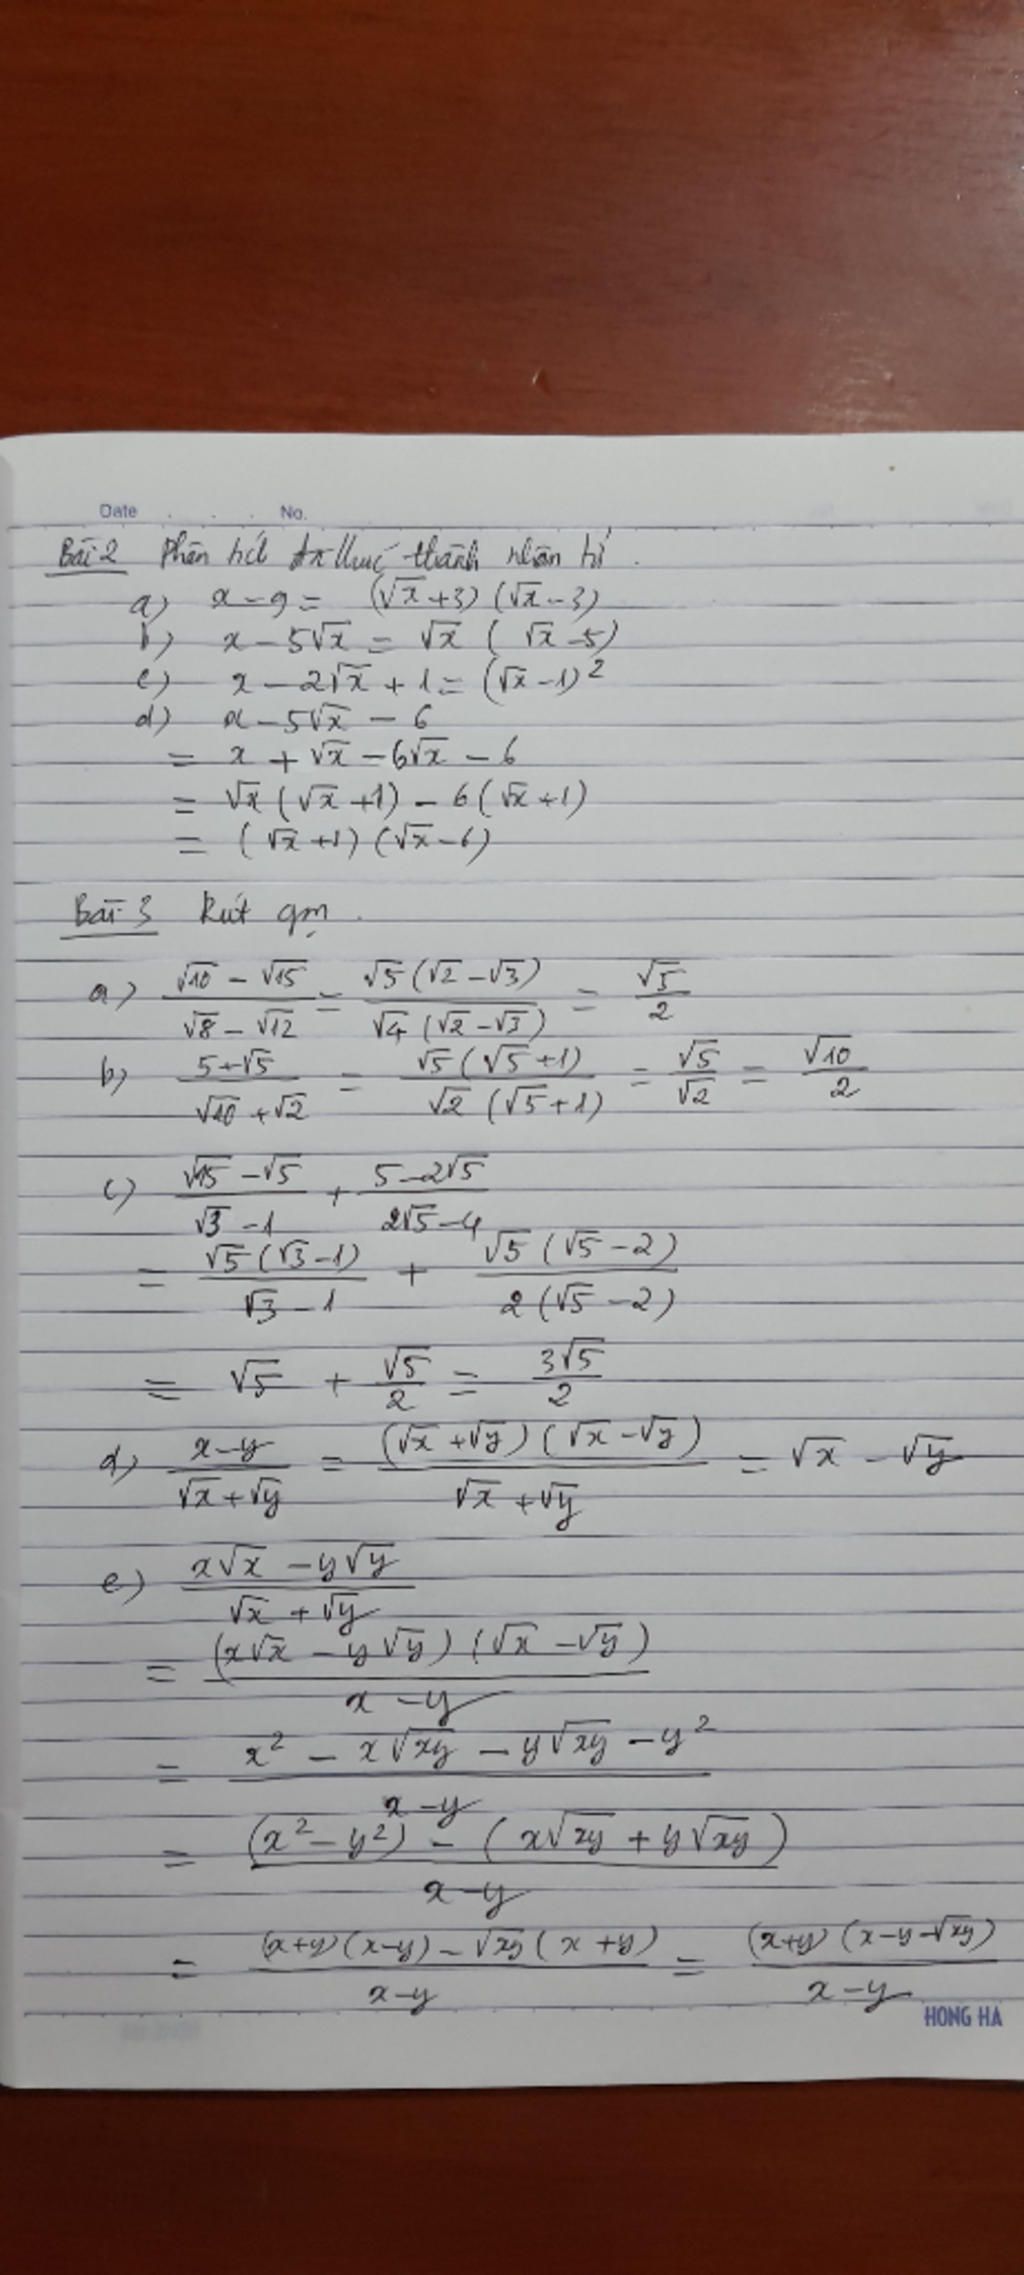 Date . . . No.
Bài 2 Phân tích đa thức thành nhân tử.
a) x - 9 = (√x + 3) (√x - 3)
b) x - 5√x = √x ( √x - 5)
c) x - 2√x + 1 = (√x - 1)²
d) x - 5√x - 6
= x + √x - 6√x - 6
= √x ( √x + 1) - 6 ( √x + 1)
= ( √x + 1) (√x - 6)
Bài 3 Rút gọn.
a) (√10 - √15)/(√8 - √12) = √5 (√2 - √3)/√4 (√2 - √3) = √5/2
b) (5 + √5)/(√10 + √2) = √5 (√5 + 1)/√2 (√5 + 1) = √5/√2 = √10/2
c) (√15 - √5)/(√3 - 1) + (5 - 2√5)/(2√5 - 4)
= √5 (√3 - 1)/(√3 - 1) + √5 (√5 - 2)/2 (√5 - 2)
= √5 + √5/2 = 3√5/2
d) (x - y)/(√x + √y) = (√x + √y) (√x - √y)/(√x + √y) = √x - √y
e) (x√x - y√y)/(√x + √y)
= (x√x - y√y) (√x - √y)/(x - y)
= (x² - x√xy - y√xy - y²)/(x - y)
= ((x² - y²) - (x√xy + y√xy))/(x - y)
= ((x+y) (x-y) - √xy (x + y))/(x - y) = (x+y) (x - y - √xy)/(x - y)
HONG HA